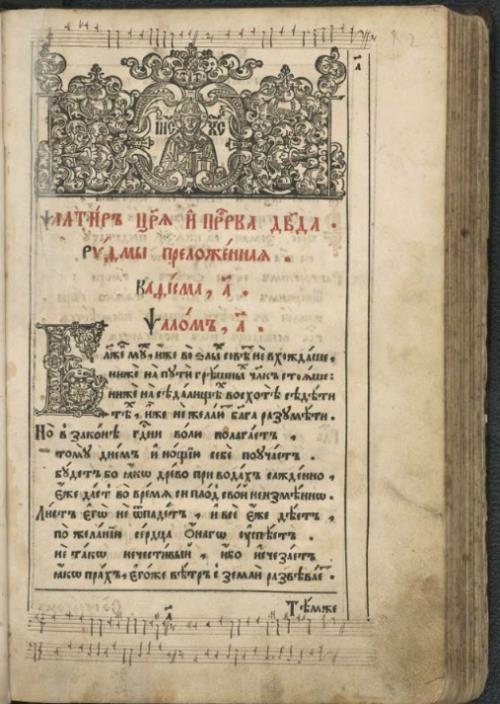 ІИС ХС
а҃
Ѱалти́рь цр҃ѧ и҆ прⷪ҇рка дв҃да .
Рѵ́ѳмы преложе́ннаѧ .
Каѳі́сма , а҃ .
Ѱало́мъ , а҃ .
Бл҃же́нъ мꙋ́жъ , и҆́же во ѕлы́хъ совѣ́тъ не вхожда́ше ,
нижѐ на пꙋтѝ грѣ́шныхъ чл҃къ стоѧ́ше :
нижѐ на сѣда́лищехъ восхотѣ̀ сѣдѣ́ти
тѣ́хъ , и҆̀же не жела́ютъ бл҃га разꙋмѣ́ти .
Но в̾ зако́нѣ гдⷭ҇ни во́лю полага́етъ ,
томꙋ̀ дне́мъ и҆ но́щїю себѐ поꙋча́етъ .
бꙋ́детъ бо ꙗ҆́кѡ дре́во при вода́хъ сажде́нно ,
є҆́же да́стъ во вре́мѧ си пло́дъ сво́й неизмѣ́ннѡ .
Ли́стъ є҆гѡ̀ не ѿпаде́тъ , и҆ всѐ є҆́же дѣ́етъ ,
по жела́нїю се́рдца ѻ҆́нагѡ ᲂу҆спѣ́етъ .
не та́кѡ нечести́вый , и҆́бо и҆счеза́етъ
ꙗ҆́кѡ пра́хъ , є҆го́же вѣ́тръ с̾ землѝ развѣва́етъ .
Тѣ́мже
а҃